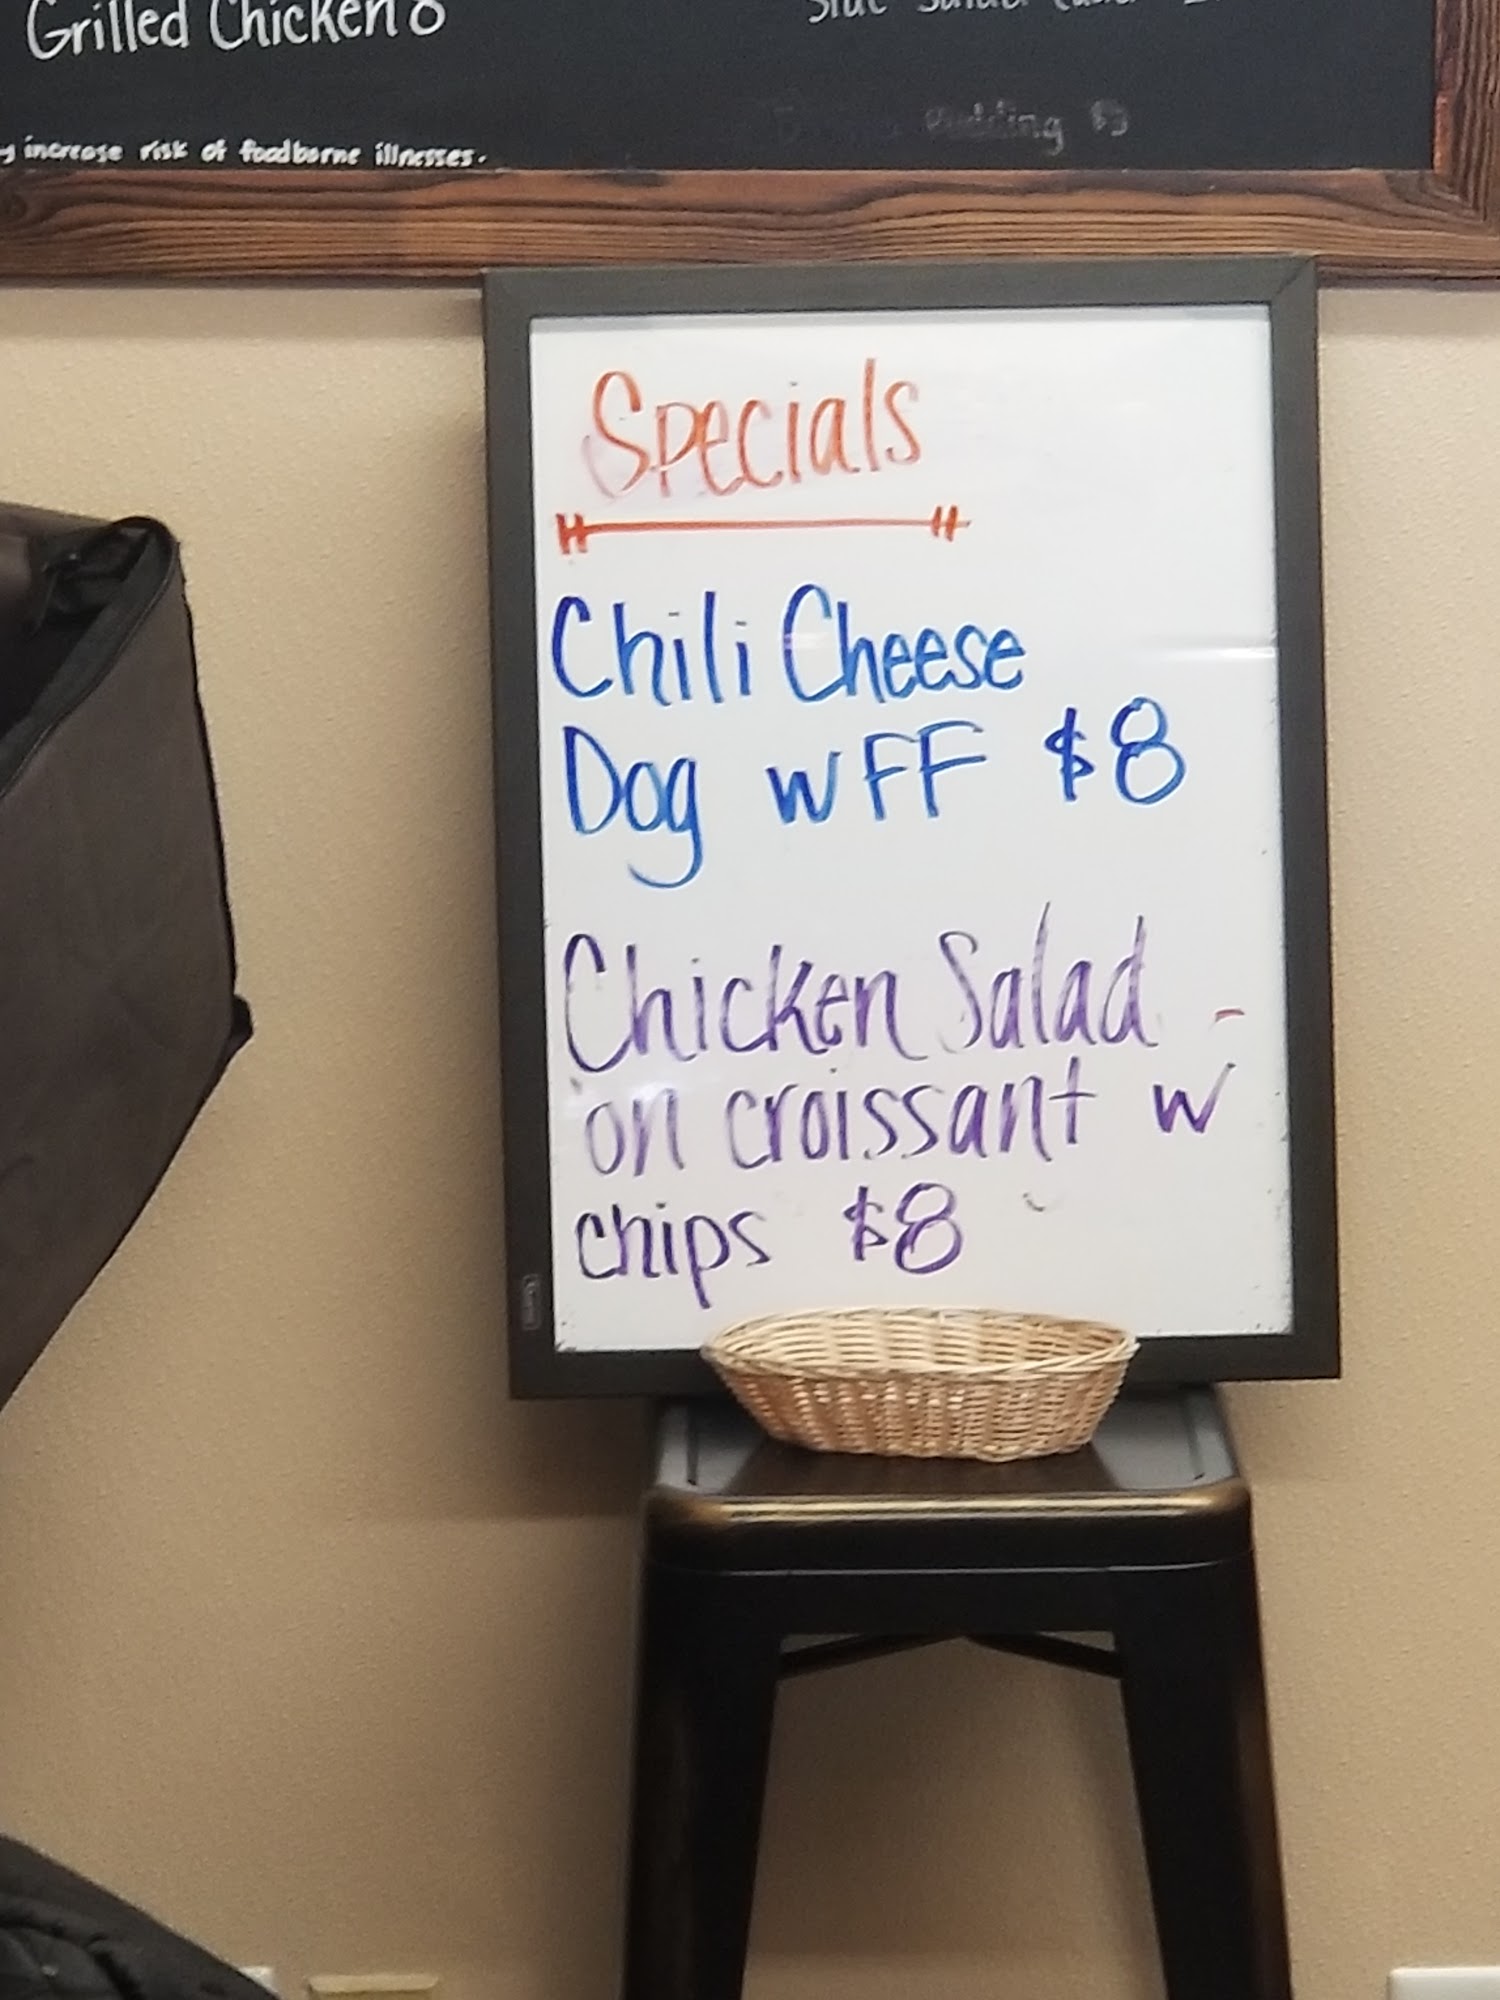 Grilled Chicken 8
increase risk of foodborne illnesses.
Pudding $3
Specials
Chili Cheese
Dog w FF $8
Chicken Salad -
on croissant w
chips $8